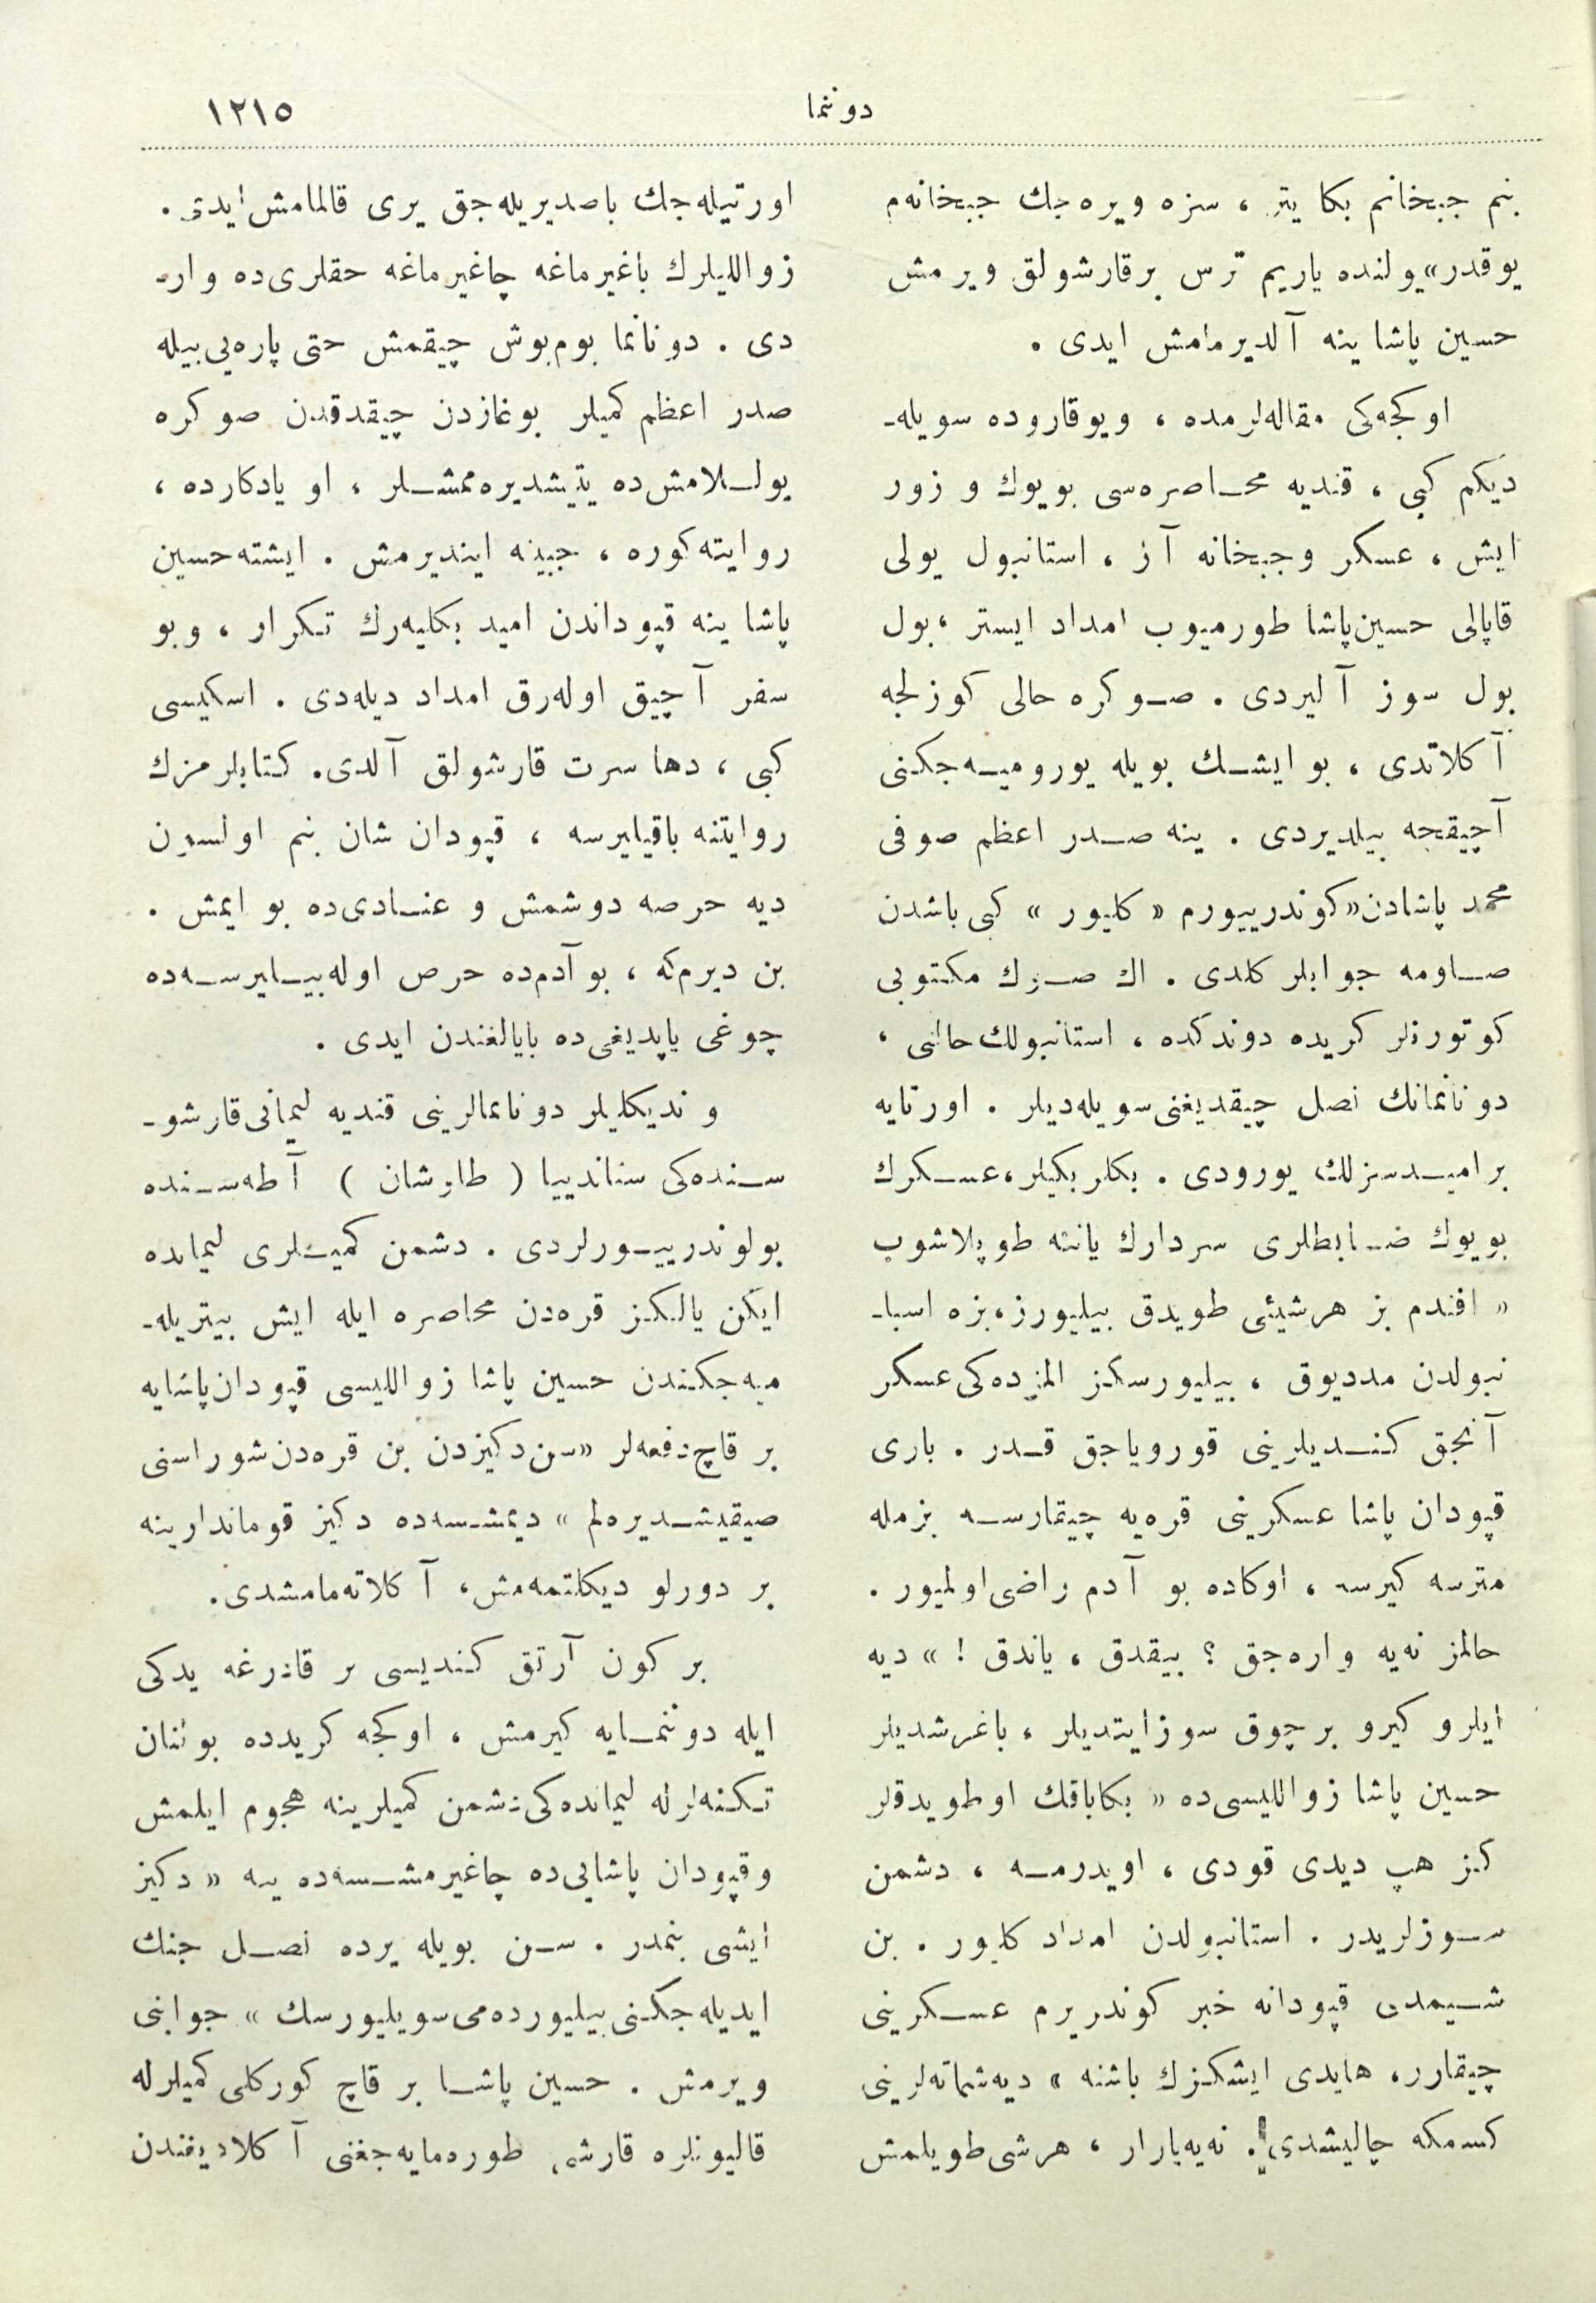 دوننما
١٢١٥
بنم جبخانم بكا يتر ، سزه ويره جك جبخانه م
يوقدر» يولنده ياريم ترس برقارشولق ويرمش
حسين پاشا ينه آلديرمامش ايدى .
اوكجه كى مقاله لرمده ، ويوقاروده سويله ـ
ديكم كبى ، قنديه محاصره سى بويوك و زور
ايش ، عسكر وجبخانه آز ، استانبول يولى
قاپالى حسين پاشا طورميوب امداد ايستر ، بول
بول سوز آليردى . صوكره حالى كوزلجه
آكلاتدى ، بو ايشك بويله يوروميه جكنى
آچيقجه بيلديردى . ينه صدر اعظم صوفى
محمد پاشادن «كوندرييورم « كليور » كبى باشدن
صاومه جوابلر كلدى . اك صوك مكتوبى
كوتورنلر كريده دوندكده ، استانبولك حالنى ،
دونانمانك نصل چيقديغنى سويله ديلر . اورتايه
بر اميدسزلك يورودى . بكلر بكيلر ، عسكرك
بويوك ضابطلرى سردارك يانه طوپلاشوب
« افندم بز هرشيئى طويدق بيليورز ، بزه اسبا ـ
نبولدن مدديوق ، بيليورسكز المزده كى عسكر
آنجق كنديلرينى قوروياجق قدر . بارى
قپودان پاشا عسكرينى قره يه چيقارسه بزمله
مترسه كيرسه ، اوكاده بو آدم راضى اولميور .
حالمز نه يه واره جق ؟ بيقدق ، ياندق ! » ديه
ايلرو كيرو بر چوق سوزايتديلر ، باغرشديلر
حسين پاشا زواللیسى ده « بكاباقك اوطويدقلر
كز هپ ديدى قودى ، اويدرمه ، دشمن
سوزلريدر . استانبولدن امداد كليور . بن
شيمدى قپودانه خبر كوندريرم عسكرينى
چيقارر ، هايدى ايشكزك باشنه » ديه شماته لرينى
كسمكه چاليشدى . نه يه يارار ، هرشى طويلمش
اورتيله جك باصديريله جق يرى قالمامش ايدى .
زواللیلرك باغيرماغه چاغيرماغه حقلرى ده وار ـ
دى . دونانما بوم بوش چيقمش حتى پاره يى بيله
صدر اعظم كميلر بوغازدن چيقدقدن صوكره
يوللامش ده يتيشديره ممشلر ، او يادكارده ،
روايته كوره ، جيبنه اينديرمش . ايشته حسين
پاشا ينه قپوداندن اميد بكليه رك تكرار ، وبو
سفر آچيق اوله رق امداد ديله دى . اسكيسى
كبى ، دها سرت قارشولق آلدى . كتابلرمزك
روايتنه باقيليرسه ، قپودان شان بنم اولسون
ديه حرصه دوشمش و عنادى ده بو ايمش .
بن ديرم كه ، بو آدم ده حرص اوله بيليرسه ده
چوغى ياپديغى ده بايالغندن ايدى .
ونديكليلر دونانمالرينى قنديه ليمانى قارشو ـ
سنده كى ستاندييا ( طاوشان ) آطه سنده
بولوندرييورلردى . دشمن كميلرى ليمانده
ايكن يالكز قره دن محاصره ايله ايش بيتريله ـ
ميه جكندن حسين پاشا زواللیسى قپودان پاشايه
بر قاچ دفعه لر «سن دكيزدن بن قره دن شوراسنى
صيقيشديره لم » ديمشسه ده دكيز قوماندارينه
بر دورلو ديكلتمه مش ، آكلاته مامشدى .
بر كون آرتق كنديسى بر قادرغه يدكى
ايله دوننمايه كيرمش ، اوكجه كريدده بولنان
تكنه لرله ليمانده كى دشمن كميلرينه هجوم ايلمش
وقپودان پاشايى ده چاغيرمشسه ده ينه « دكيز
ايشى بنمدر . سن بويله يرده نصل جنك
ايديله جكنى بيليورده مى سويليورسك » جوابنى
ويرمش . حسين پاشا بر قاچ كوركلى كميلرله
قاليونلره قارشى طوره مايه جغنى آكلاديغندن